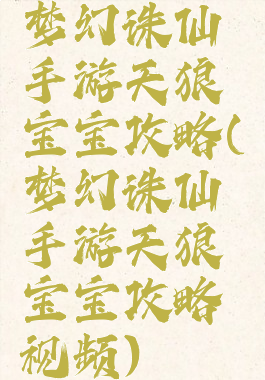 梦幻诛仙
手游天狼
宝宝攻略(
梦幻诛仙
手游天狼
宝宝攻略
视频)